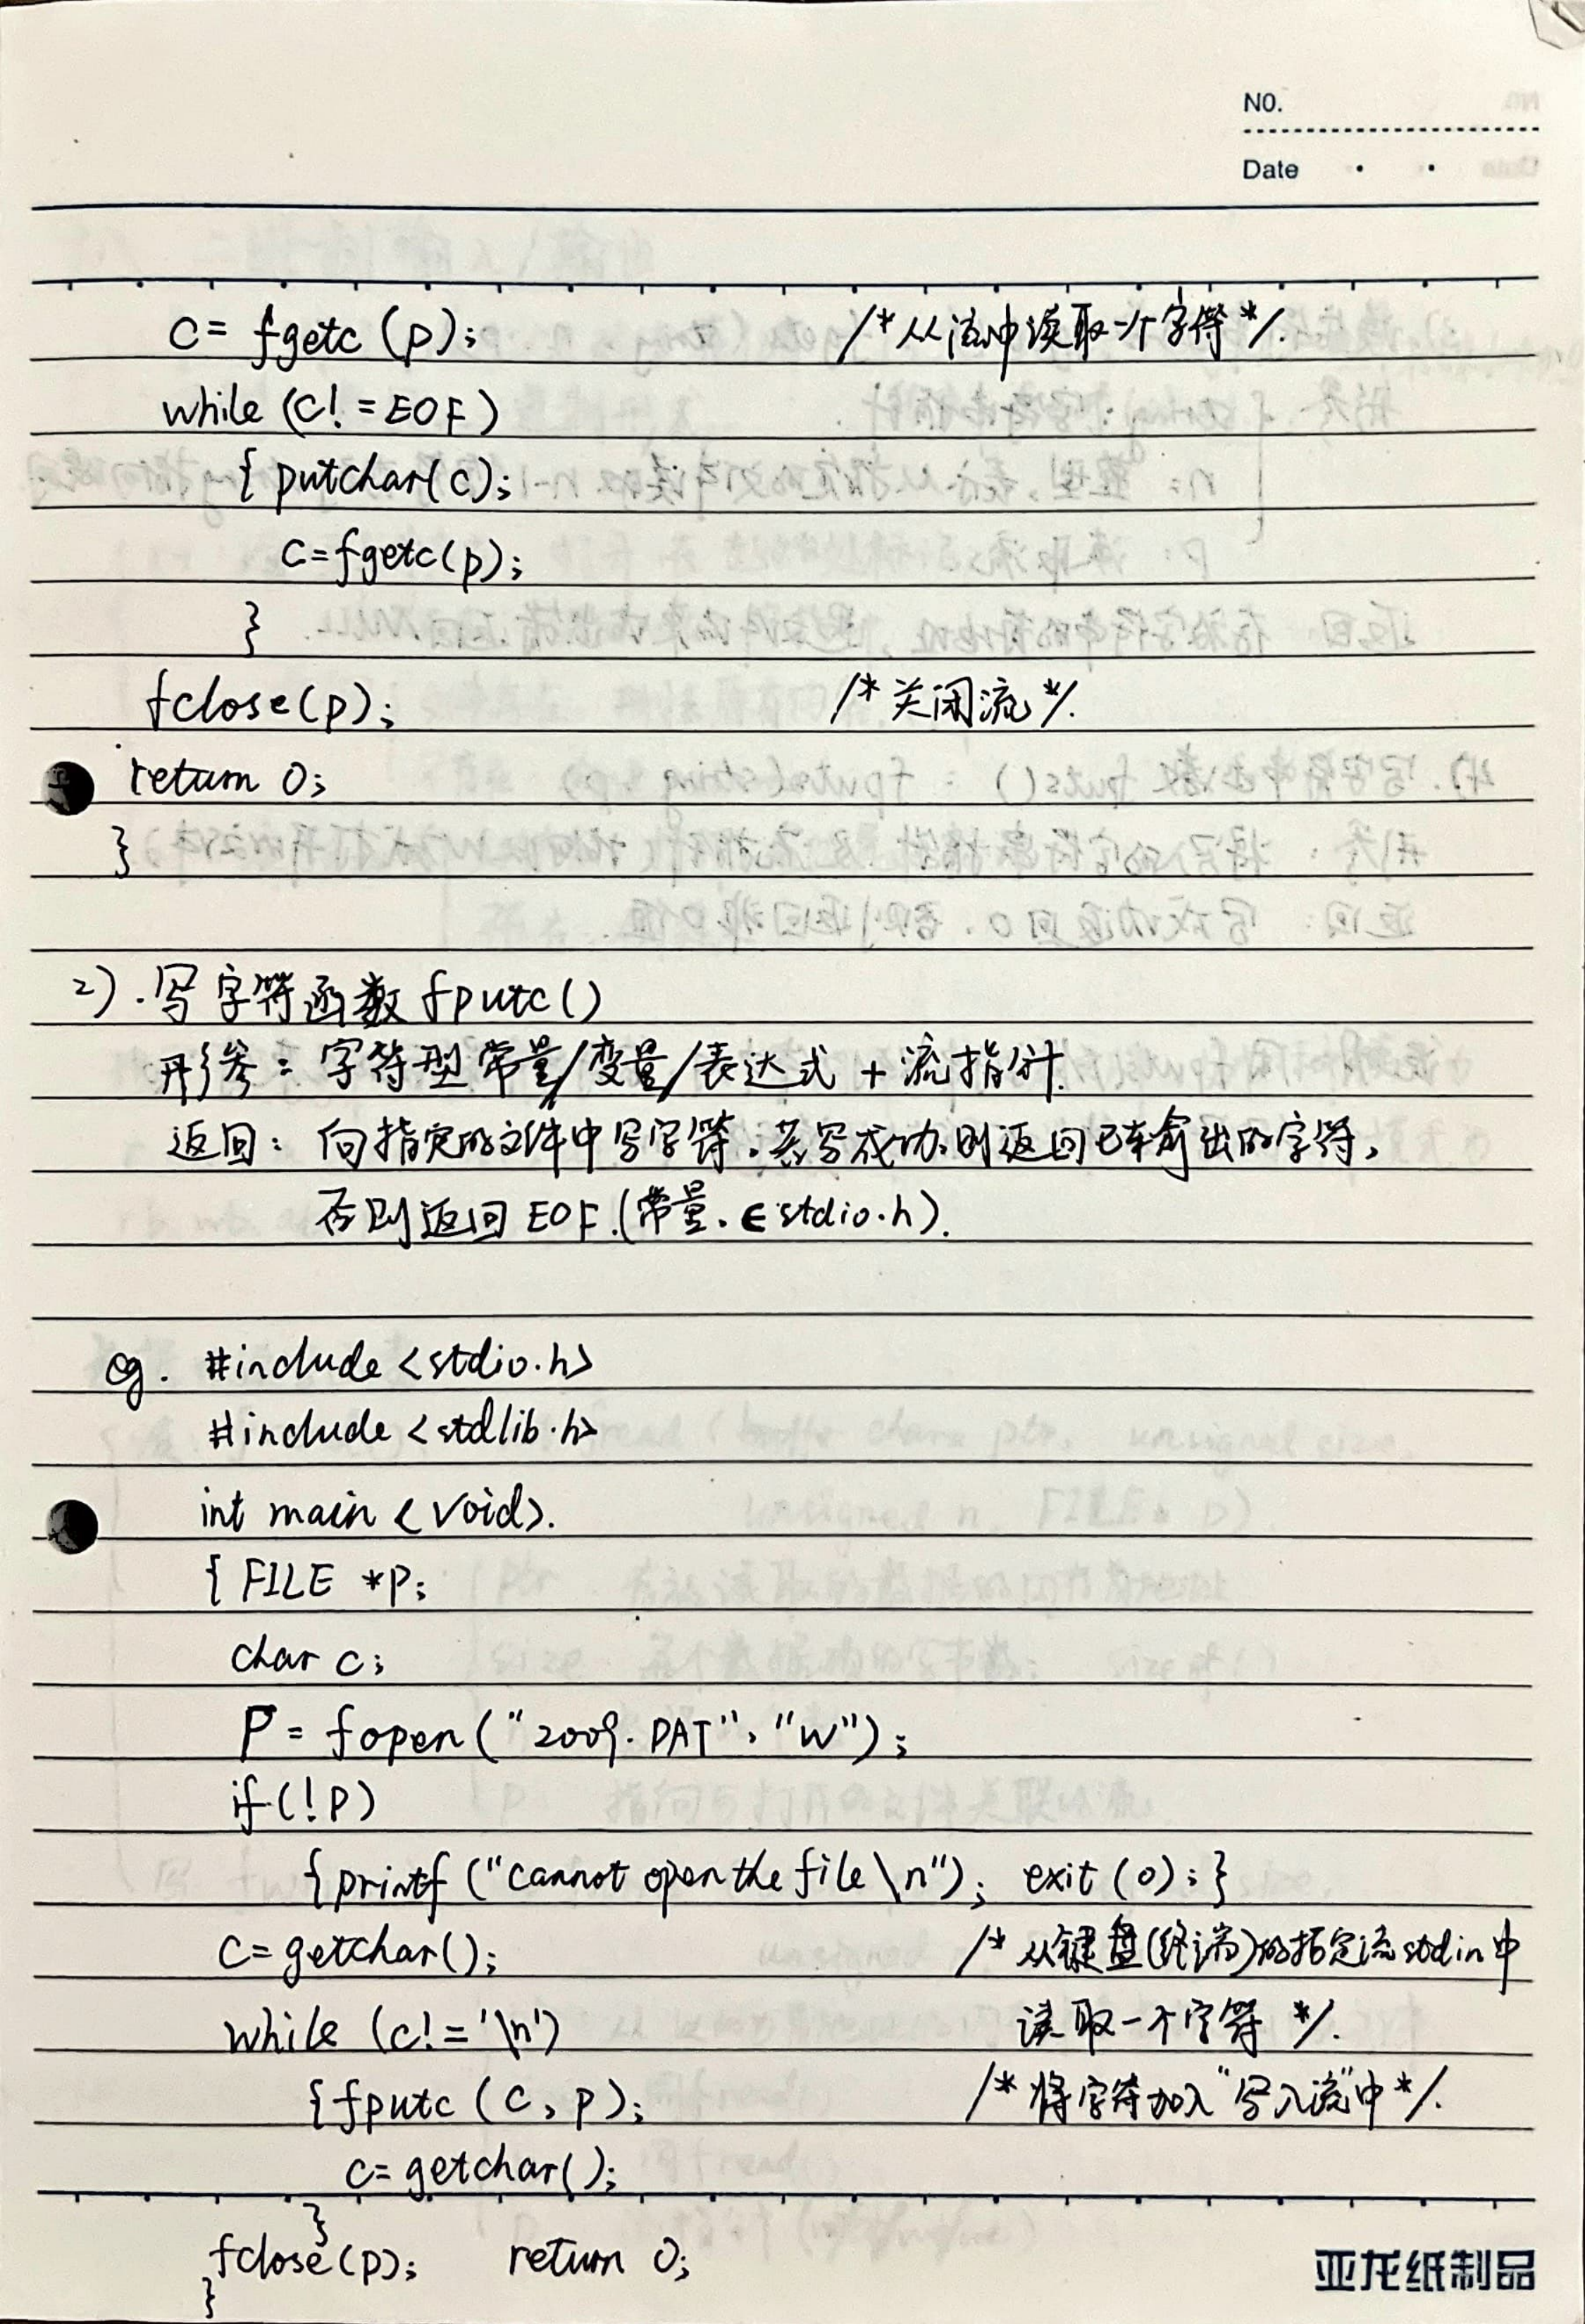 NO.
Date
c = fgetc (p); /* 从流中读取一个字符 */.
while (c! = EOF)
{ putchar(c);
c=fgetc(p);
}
fclose(p); /* 关闭流 */.
return 0;
}
2).写字符函数 fputc()
形参: 字符型常量/变量/表达式 + 流指针.
返回: 向指定的文件中写字符.若写成功,则返回已输出的字符,
否则返回 EOF.(常量. ∈ stdio.h).
eg. #include <stdio.h>
#include <stdlib.h>
int main <void>.
{ FILE *p;
char c;
P = fopen ("2009.DAT", "w");
if (!p)
{printf ("cannot open the file \n"); exit (0);}
c = getchar(); /* 从键盘(终端)的指定流stdin中
while (c! = '\n') 读取一个字符 */.
{fputc (c, p); /* 将字符加入"写入流"中 */.
c= getchar();
}
fclose(p); return 0;
}
亚龙纸制品